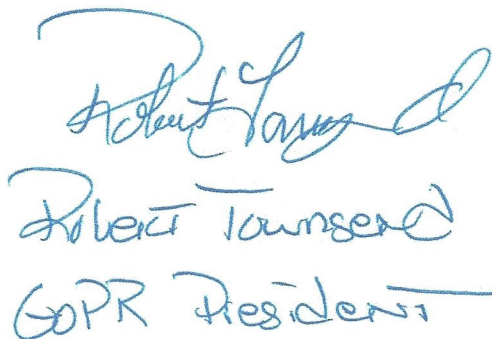 Robert Townsend
Robert Townsend
GOPR President